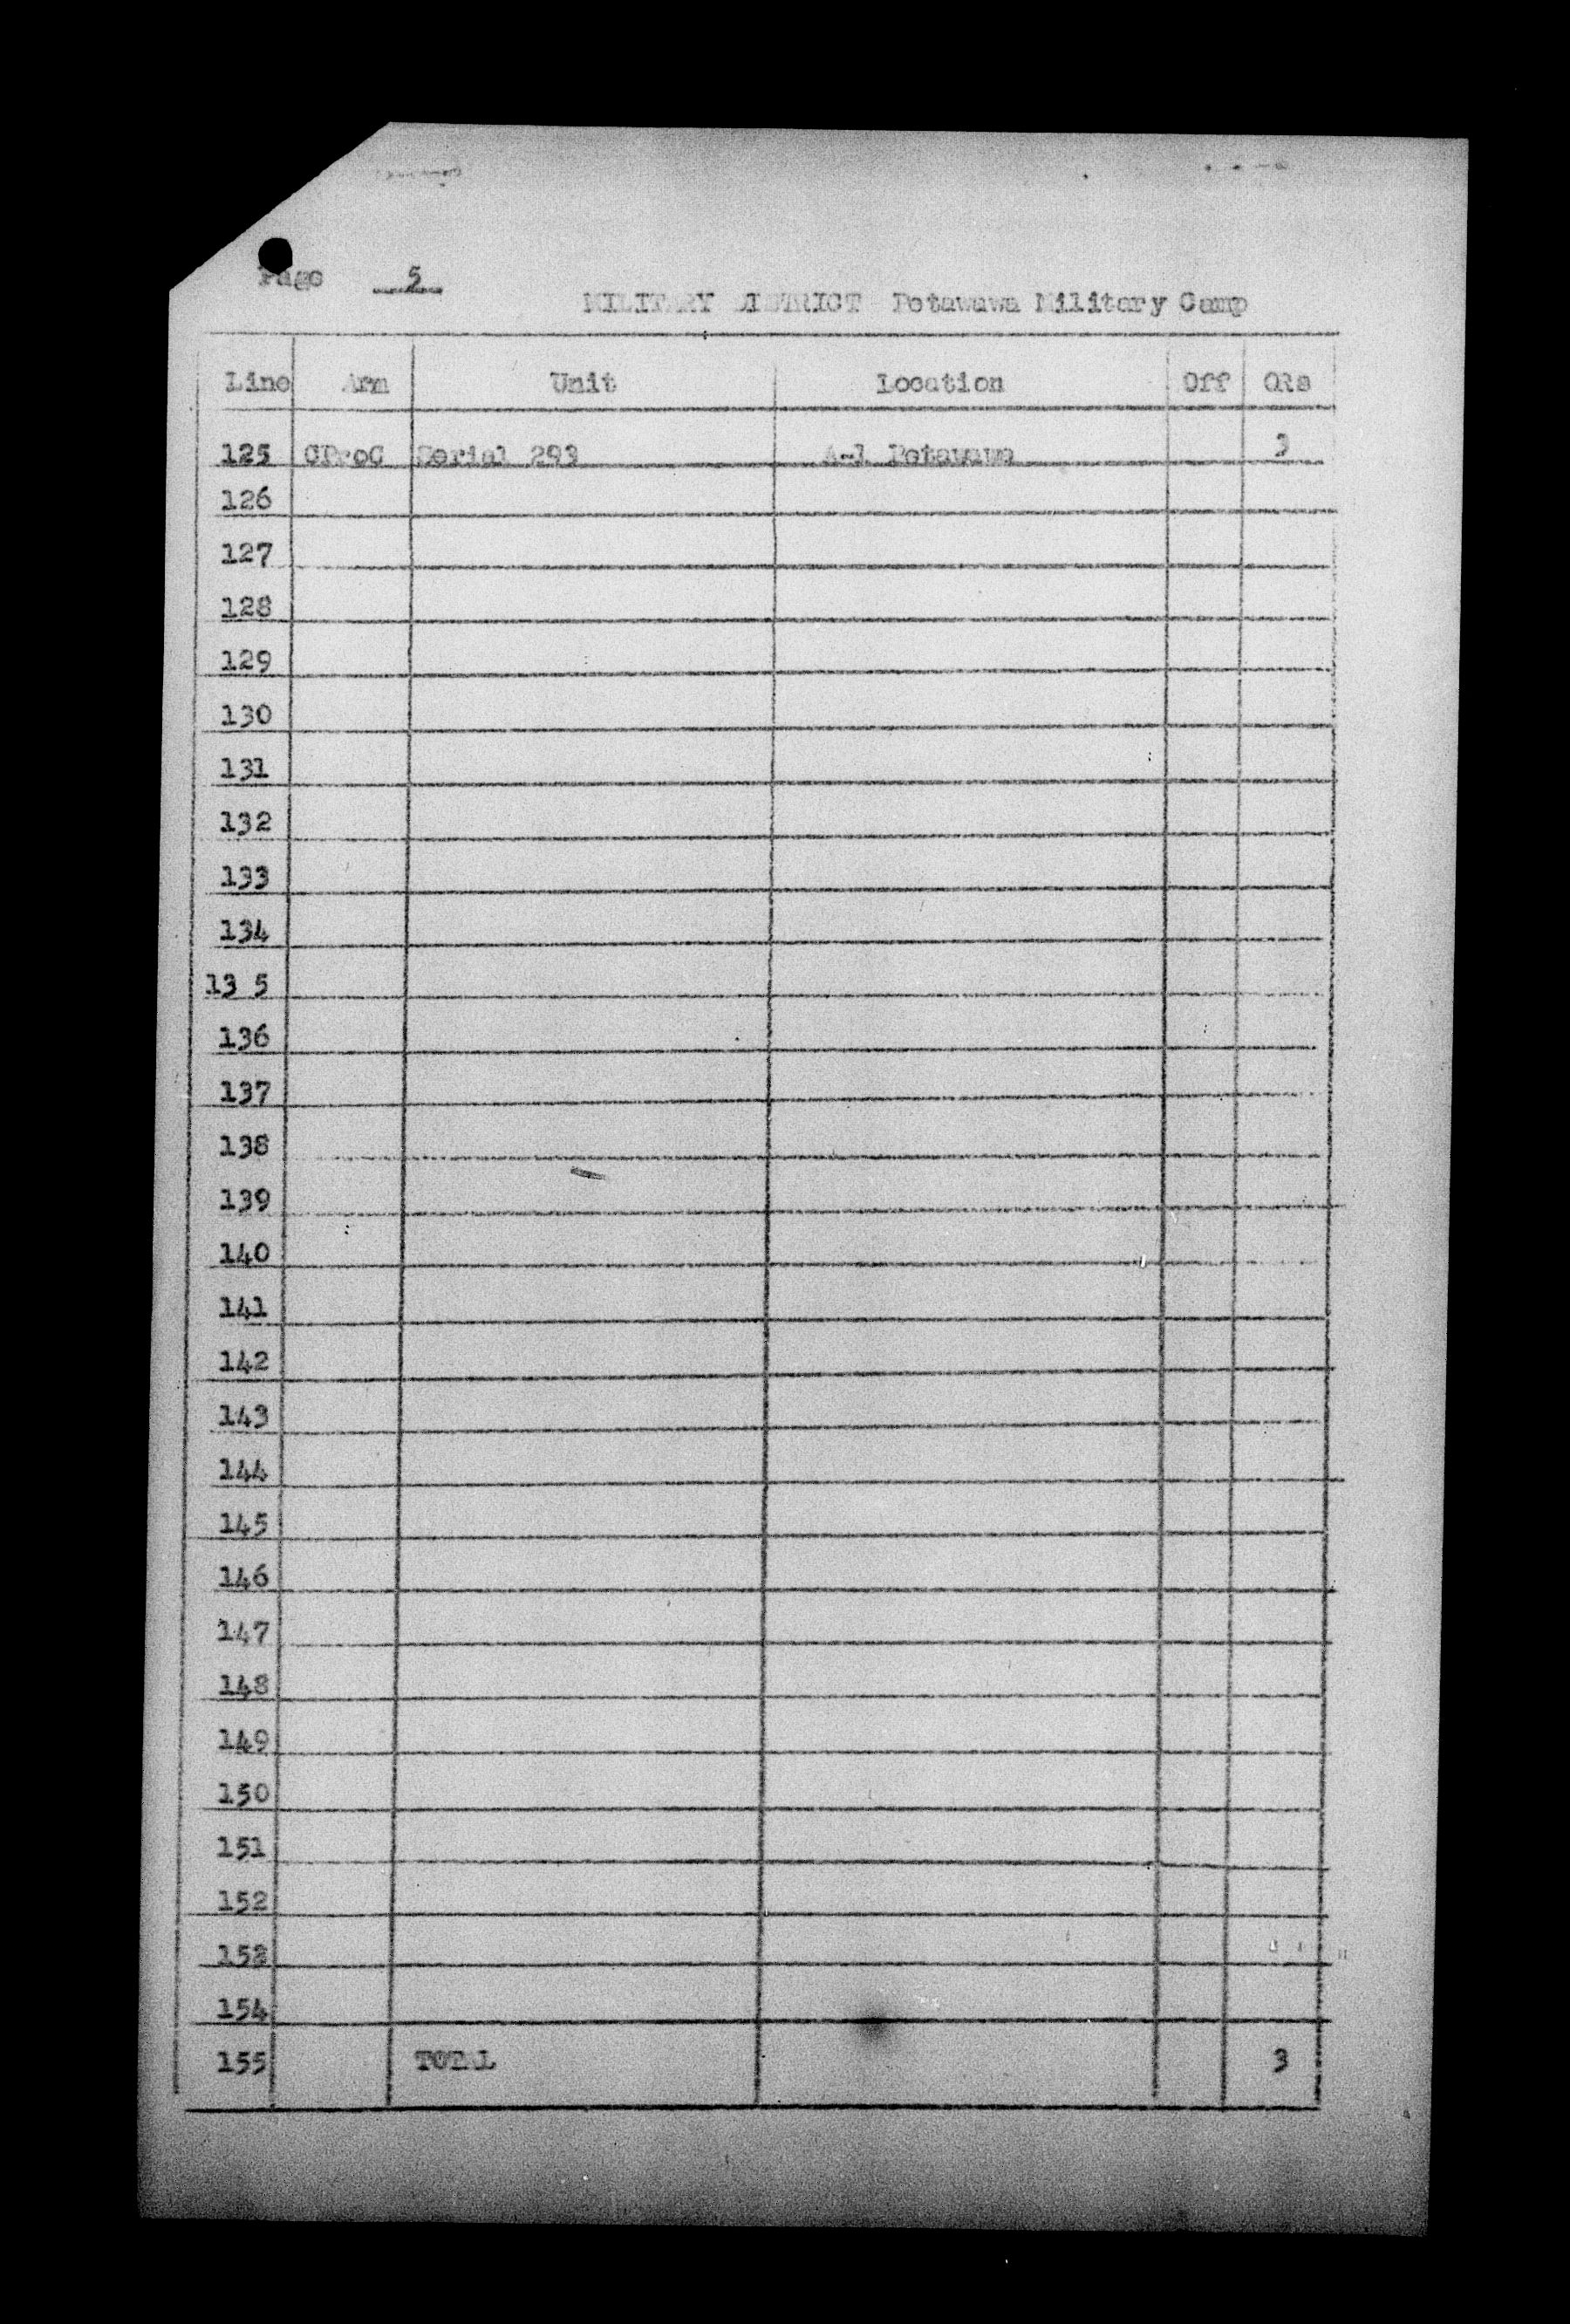 Page 5
MILITARY DISTRICT Petawawa Military Camp
Line Arm Unit Location Off ORs
125 CProC Serial 293 A-1 Petawawa 3
126
127
128
129
130
131
132
133
134
13 5
136
137
138
139
140
141
142
143
144
145
146
147
148
149
150
151
152
153
154
155 TOTAL 3